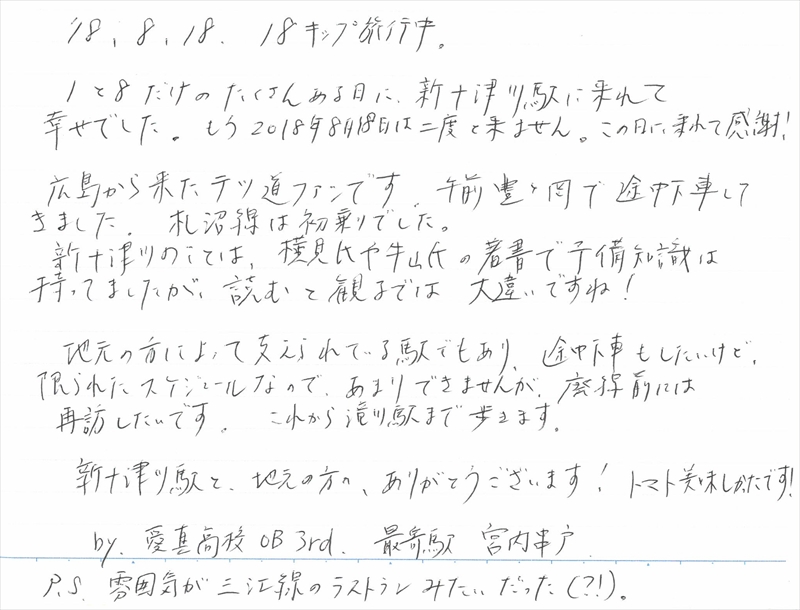 '18, 8, 18. 18キップ旅行中。
1と8だけのたくさんある日に、新十津川駅に来れて
幸せでした。もう2018年8月18日は二度と来ません。この日に来れて感謝!
広島から来たテツ道ファンです。午前豊ヶ岡で途中下車して
きました。札沼線は初乗りでした。
新十津川のことは、横見氏や牛山氏の著書で予備知識は
持ってましたが、読むと観るでは大違いですね!
地元の方によって支えられている駅でもあり、途中下車もしたいけど、
限られたスケジュールなので、あまりできませんが、廃線前には
再訪したいです。これから滝川駅まで歩きます。
新十津川駅と、地元の方へ、ありがとうございます! トマト美味しかたです!
by. 愛真高校OB 3rd. 最寄駅 宮内串戸
P.S. 雰囲気が三江線のラストランみたいだった(?!)。